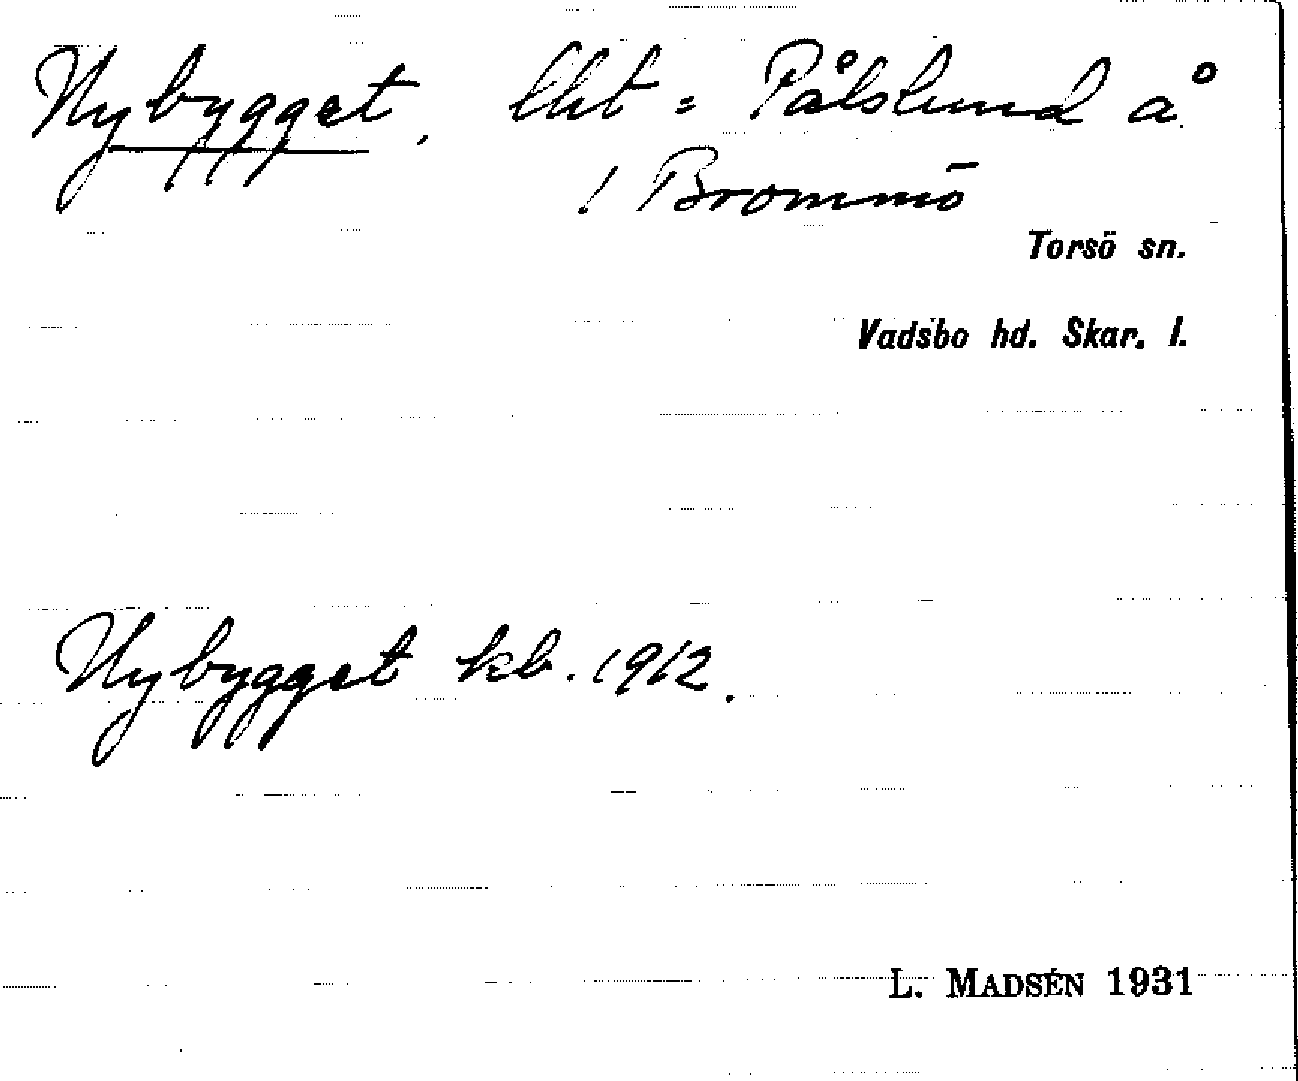 Nybygget, lht = Pålslund å
/ Brommö
Torsö sn.
Vadsbo hd. Skar. l.
Nybygget kb. 1912.
L. MADSÉN 1931